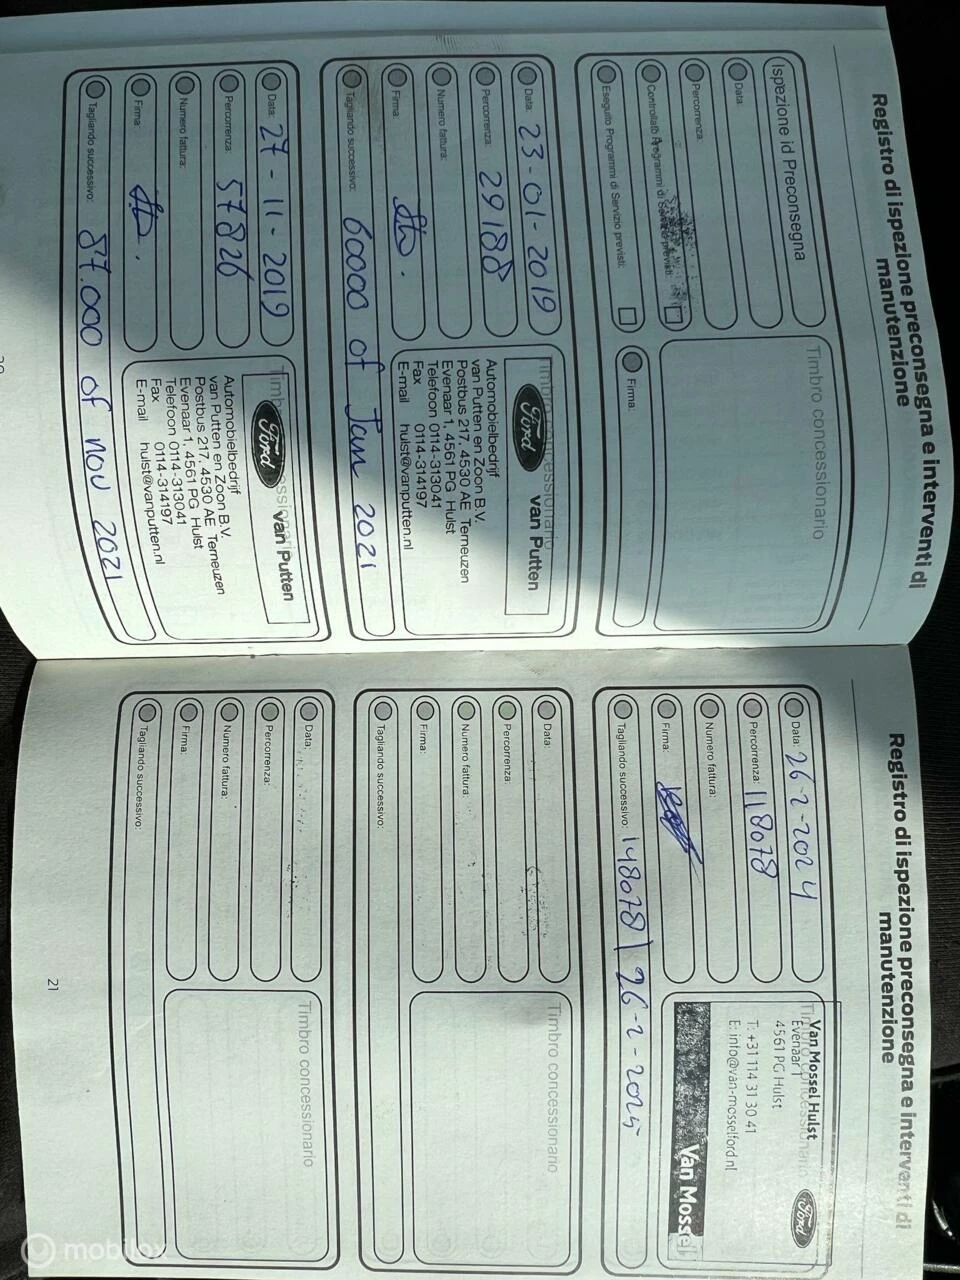 Registro di ispezione preconsegna e interventi di
manutenzione
Ispezione id Preconsegna
Data:
Percorrenza:
Controllato Programmi di Servizio previsti:
Eseguito Programmi di Servizio previsti:
Timbro concessionario
Firma:
Data: 23-01-2019
Percorrenza: 29188
Numero fattura:
Firma:
Tagliando successivo: 60000 of Jan 2021
Timbro concessionario
Ford van Putten
Automobielbedrijf
van Putten en Zoon B.V.
Postbus 217, 4530 AE Terneuzen
Evenaar 1, 4561 PG Hulst
Telefoon 0114-313041
Fax 0114-314197
E-mail hulst@vanputten.nl
Data: 27-11-2019
Percorrenza: 57826
Numero fattura:
Firma:
Tagliando successivo: 87.000 of nov 2021
Timbro concessionario
Ford van Putten
Automobielbedrijf
van Putten en Zoon B.V.
Postbus 217, 4530 AE Terneuzen
Evenaar 1, 4561 PG Hulst
Telefoon 0114-313041
Fax 0114-314197
E-mail hulst@vanputten.nl
Registro di ispezione preconsegna e interventi di
manutenzione
Data: 26-2-2024
Percorrenza: 118078
Numero fattura:
Firma:
Tagliando successivo: 148078 | 26-2-2025
Timbro concessionario
Van Mossel Hulst
Evenaar 1
4561 PG Hulst
T: +31 114 31 30 41
E: info@van-mosselford.nl
Ford
Van Mossel
Data:
Percorrenza:
Numero fattura:
Firma:
Tagliando successivo:
Timbro concessionario
Data:
Percorrenza:
Numero fattura:
Firma:
Tagliando successivo:
Timbro concessionario
21
mobilox